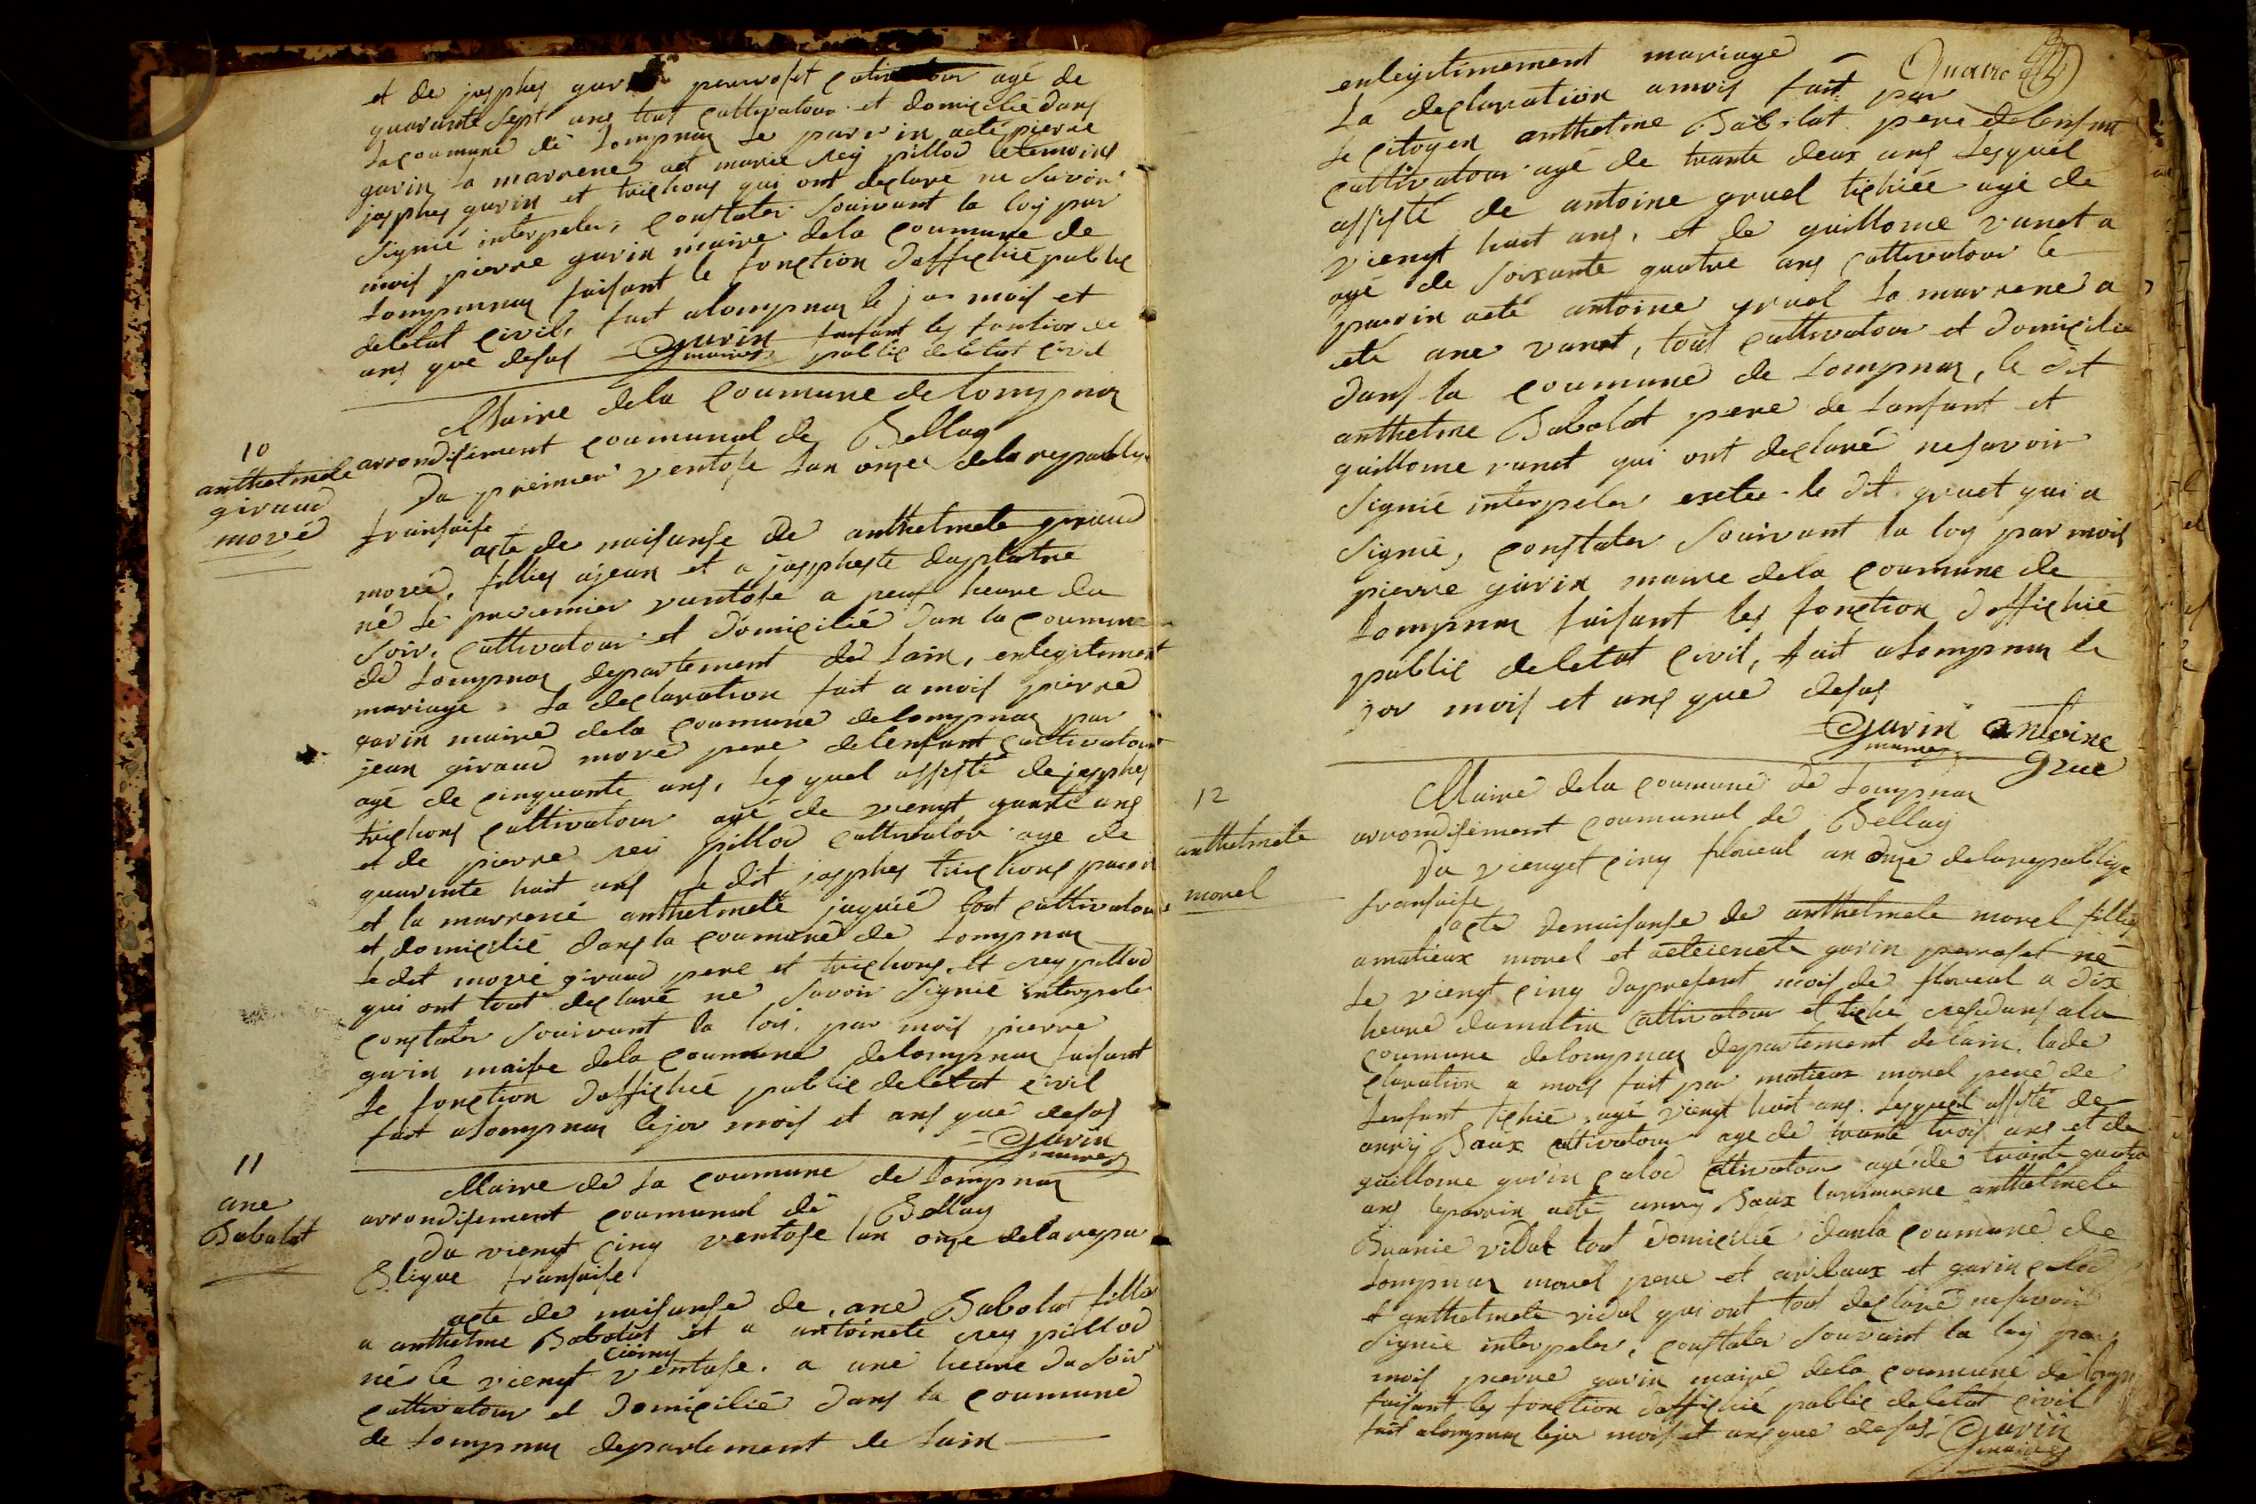 et de josphes garin perrofet cultivatour agé de
quarante sept ans tous cultivatour et domicilié dans
la coumune de Lompnaz le parrin acté pierre
garin la marrene act marie rey pillod le temoins
josphes garin et trichons qui ont declaré ne savoir
signié interpeler, constater souivant la loy par
mois pierre garin maire dela coumune de
Lompnaz faisant le fonction daffichié public
deletat civil, fait alompnaz le jor mois et
ans que desus Garin faisant les fontion de
maire public deletat civil
Maire dela coumune de Lompnaz
10
arrondisement coumunal de Bellay
anthelmete
giraud
moré
Du premier ventose lan onze dela republique
fransaise
acte de naisanse de anthelmete giraud
moré, filliez ajean et a josphete dasplatre
né le premier vantose a neuf heure du
soir, cultivatour et domicilié dan la coumune
de Lompnaz departement de Lain, enlegitiment
mariage. La declaration fait a mois pierre
garin maire dela coumune delompnaz par
jean giraud moré pere delenfant cultivatour
agé de cinquante ans, les quel assisté de josphes
trichons cultivatour agé de viengt quarte ans
et de pierre rey pillod cultivatour age de
quarente huit ans le dit josphes trichons parrin
et la marrene anthelmete juquié tout cultivatour
et domicilié dans la coumune de Lompnaz
ledit moré giraud pere et trichons et rey pillod
qui ont tout declaré ne savoir signié interpeler
constater souivant la lois par mois pierre
garin maire dela coumune delompnaz faisant
le fonction daffichié public deletat civil
fait alompnaz lejor mois et ans que desus
Garin
maire
11
ane
Babolat
Maire de la coumune de Lompnaz
arrondisement coumunal de Bellay
Du viengt cinq ventose lan onze delarepu
blique fransaise
acte de naisanse de ane Babolat fille
a anthelme Babolat et a antoinete rey pillod
cienq
né le viengt ventose a une heure du soir
cultivatour et domicilié dans la coumune
de Lompnaz departement de Lain
enlegitimement mariage
Quatre
La declaration amois fait par
le citoyen anthelme Babolat pere delenfant
cultivatour agé de trante deux ans lesquel
assisté de antoine gruel tichiée agé de
viengt huit ans, et de guillome vunet a
agé de soixante quatre ans cultivatour le
parrin acté antoine gruel la marrene a
eté ane vanet, tous cultivatour et domicilié
dans la coumune de Lompnaz, le dit
anthelme Babolat pere de lanfant et
guillome vunet qui ont declaré nesavoir
signié interpeler exeter le dit gruet qui a
signié, constater souivant la loy par mois
pierre garin maire dela coumune de
Lompnaz faisant les fonction daffichié
public deletat civil, fait alompnaz le
jor mois et ans que desus
Garin antoine
maire grue
12
anthelmete
morel
Maire dela coumune de Lompnaz
arrondisement coumunal de Bellay
Du viengt cinq floreal an onze delarepublique
fransaise
acte denaisanse de anthelmete morel fille
amatieux morel et aeteienete garin perrofet né
le viengt cinq dupresent mois de floreal a dix
heure dumatin cultivatour et tichié resedans ala
coumune delompnaz departement delain lade
claration a mois fait par matieux morel pere de
Lenfant tichié agé viengt huit ans. lesquel assité de
anrry Baux cultivatour age de trante trois ans et de
guillome garin calod cultivatour agé de trante quatre
ans leparrin acté anrry Baux lamarrene anthelmete
vidal tout domicilié danla coumune de
Lompnaz morel pere et anribaux et garin calod
et anthelmete vidal qui ont tout declaré nesavoir
signié interpeler, constater souvant la loy par
mois pierre garin maire dela coumune de lomp
faisant les fonction daffichié public deletat civil
fait alompnaz lejor mois et ans que desus Garin
maire